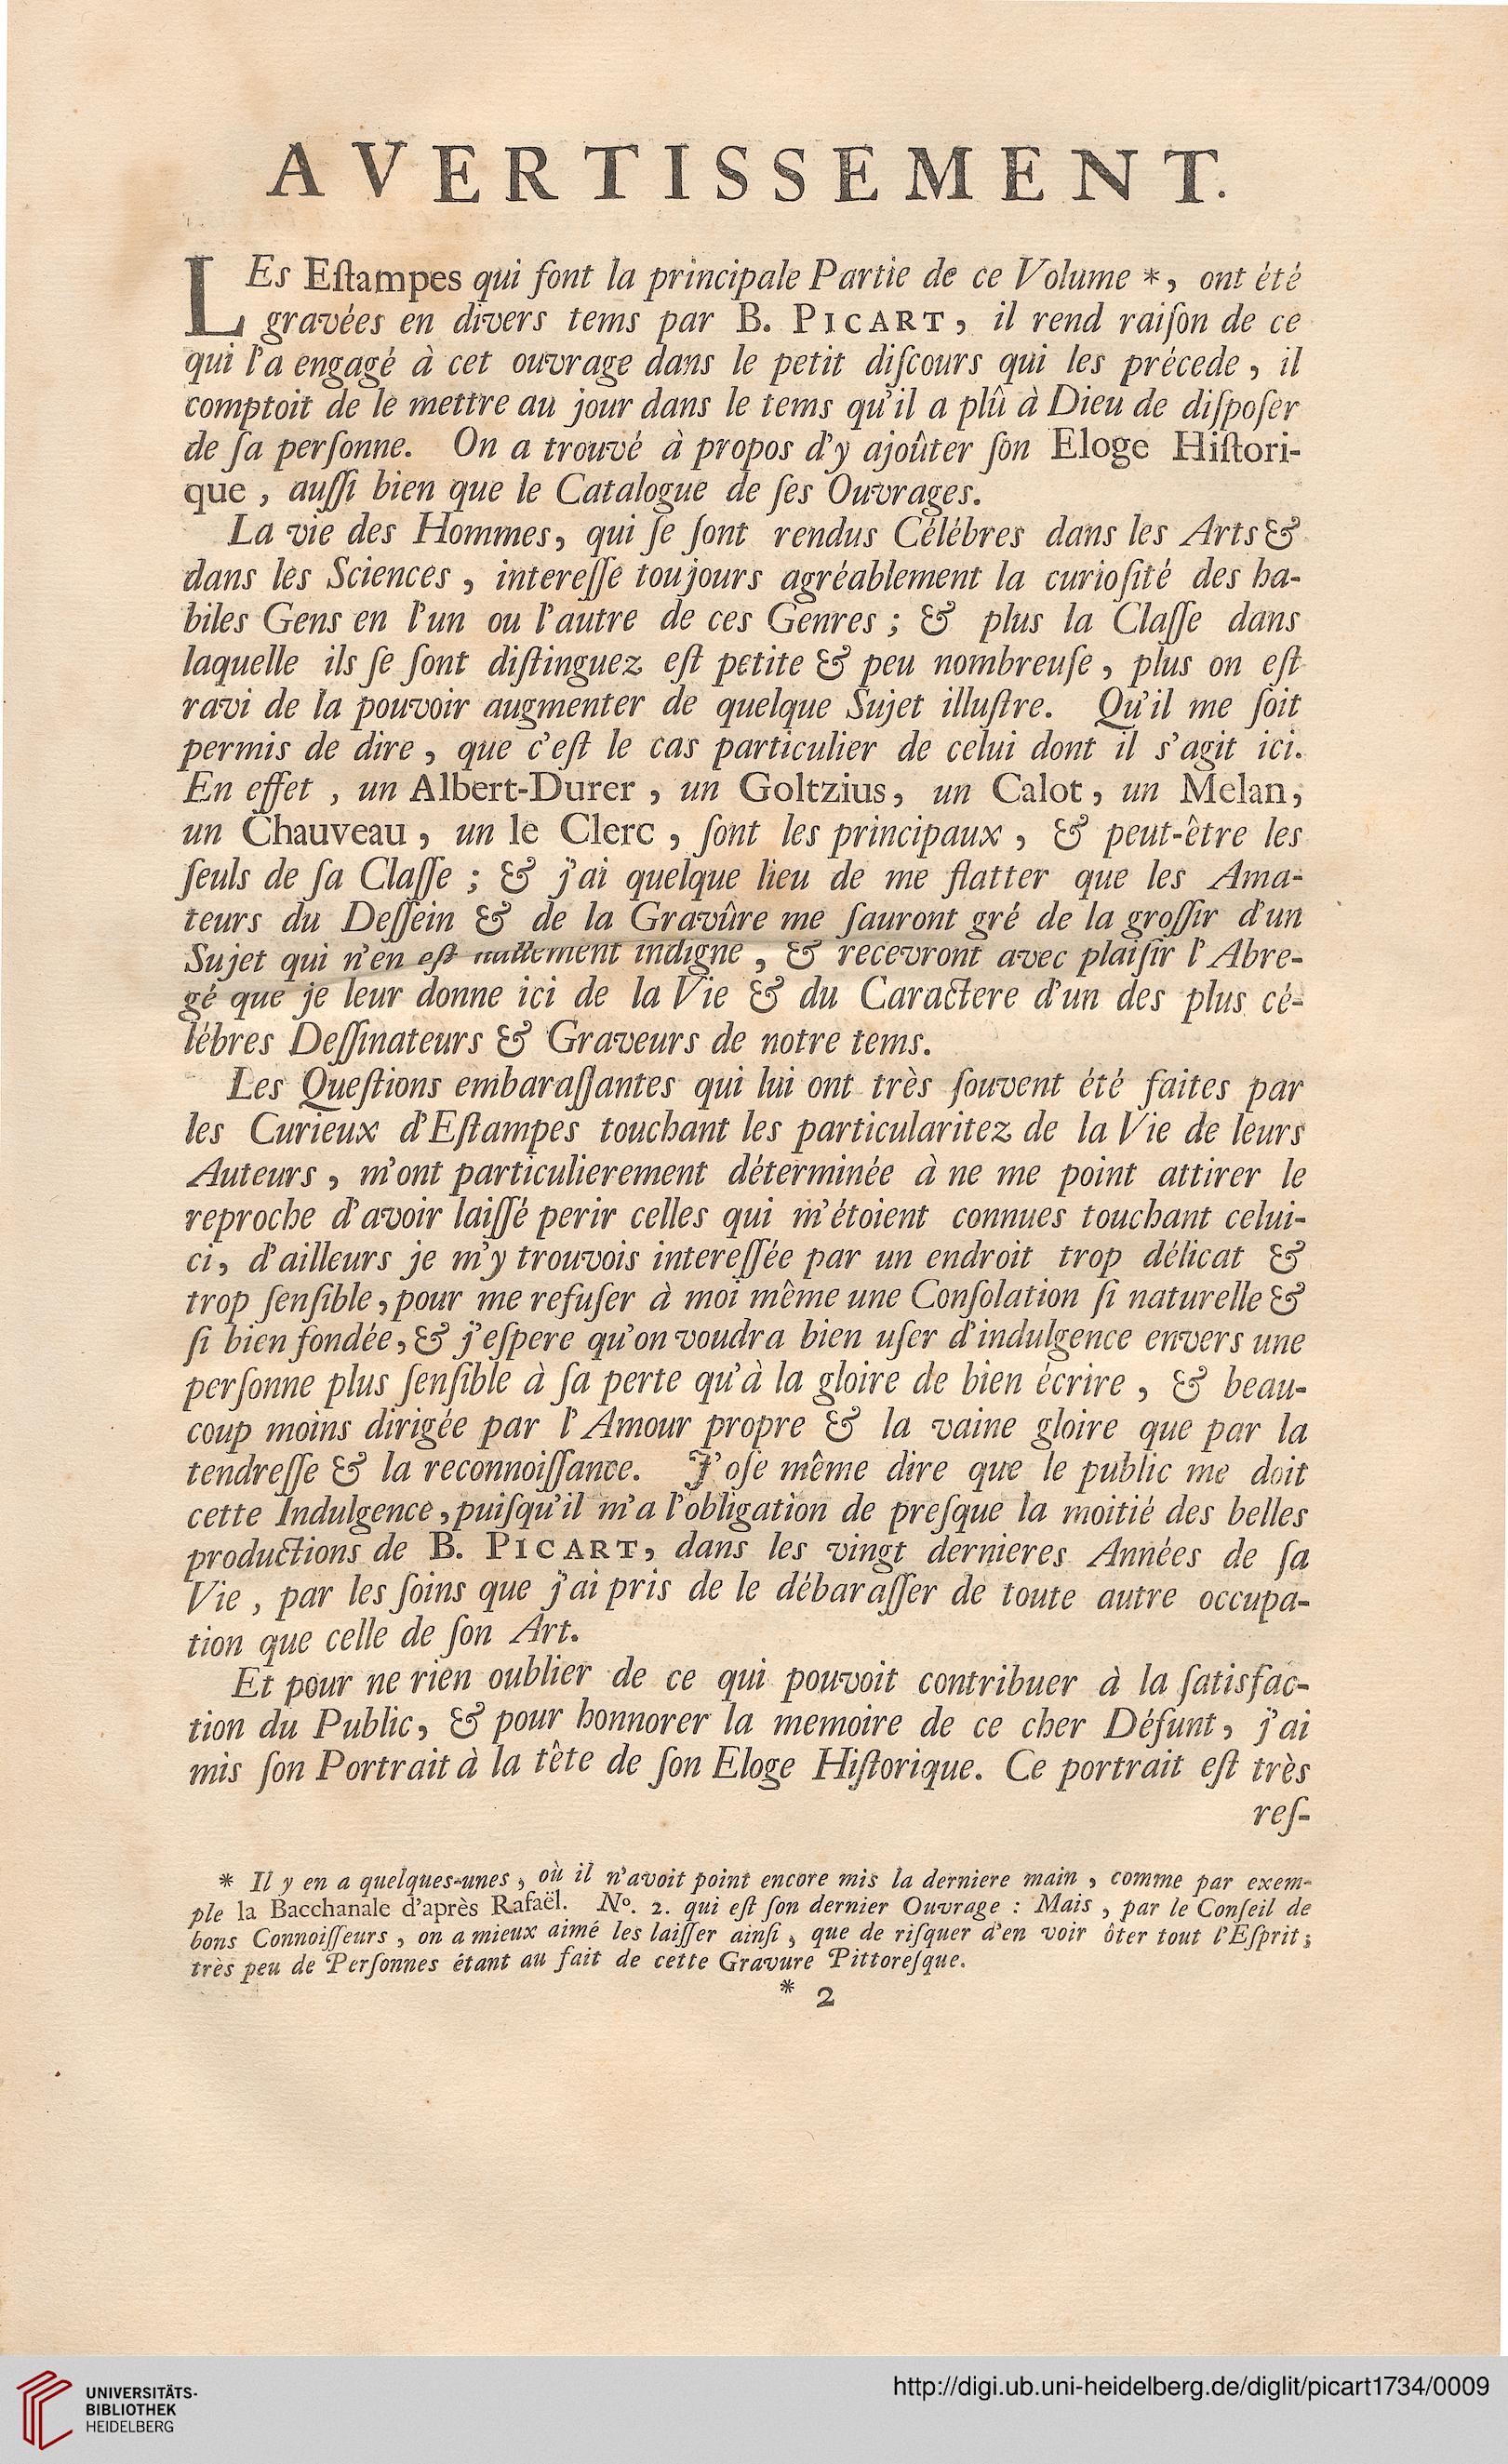 AVERTISSEMENT.
LEs Eſtampes qui font la principale Partie de ce Volume *, ont été
gravées en divers tems par B. PICART, il rend raiſon de ce
qui l'a engagé à cet ouvrage dans le petit diſcours qui les précede, il
comptoit de le mettre au jour dans le tems qu'il a plû à Dieu de diſpoſer
de ſa perſonne. On a trouvé à propos d'y ajoûter ſon Eloge Hiſtori-
que, auſſi bien que le Catalogue de ſes Ouvrages.
La vie des Hommes, qui ſe ſont rendus Célébres dans les Arts &
dans les Sciences, intereſſe toujours agréablement la curioſité des ha-
biles Gens en l'un ou l'autre de ces Genres; & plus la Claſſe dans
laquelle ils ſe ſont diſtinguez eſt petite & peu nombreuſe, plus on eſt
ravi de la pouvoir augmenter de quelque Sujet illuſtre. Qu'il me ſoit
permis de dire, que c'eſt le cas particulier de celui dont il s'agit ici.
En effet, un Albert-Durer, un Goltzius, un Calot, un Melan,
un Chauveau, un le Clerc, ſont les principaux, & peut-être les
ſeuls de ſa Claſſe; & j'ai quelque lieu de me flatter que les Ama-
teurs du Deſſein & de la Gravûre me ſauront gré de la groſſir d'un
Sujet qui n'en eſt nullement indigne, & recevront avec plaiſir l'Abre-
gé que je leur donne ici de la Vie & du Caractere d'un des plus cé-
lébres Deſſinateurs & Graveurs de notre tems.
Les Queſtions embaraſſantes qui lui ont très ſouvent été faites par
les Curieux d'Eſtampes touchant les particularitez de la Vie de leurs
Auteurs, m'ont particulierement déterminée à ne me point attirer le
reproche d'avoir laiſſé perir celles qui m'étoient connues touchant celui-
ci, d'ailleurs je m'y trouvois intereſſée par un endroit trop délicat &
trop ſenſible, pour me refuſer à moi même une Conſolation ſi naturelle &
ſi bien fondée, & j'eſpere qu'on voudra bien uſer d'indulgence envers une
perſonne plus ſenſible à ſa perte qu'à la gloire de bien écrire, & beau-
coup moins dirigée par l'Amour propre & la vaine gloire que par la
tendreſſe & la reconnoiſſance. J'oſe même dire que le public me doit
cette Indulgence, puiſqu'il m'a l'obligation de preſque la moitié des belles
productions de B. PICART, dans les vingt dernieres Années de ſa
Vie, par les ſoins que j'ai pris de le débaraſſer de toute autre occupa-
tion que celle de ſon Art.
Et pour ne rien oublier de ce qui pouvoit contribuer à la ſatisfac-
tion du Public, & pour honnorer la memoire de ce cher Défunt, j'ai
mis ſon Portrait à la tête de ſon Eloge Hiſtorique. Ce portrait eſt très
reſ-
* Il y en a quelques-unes, où il n'avoit point encore mis la derniere main, comme par exem-
ple la Bacchanale d'après Rafaël. No. 2. qui eſt ſon dernier Ouvrage: Mais, par le Conſeil de
bons Connoiſſeurs, on a mieux aimé les laiſſer ainſi, que de riſquer d'en voir ôter tout l'Eſprit;
très peu de Perſonnes étant au fait de cette Gravure Pittoreſque.
* 2
UNIVERSITÄTS-
BIBLIOTHEK
HEIDELBERG
http://digi.ub.uni-heidelberg.de/diglit/picart1734/0009